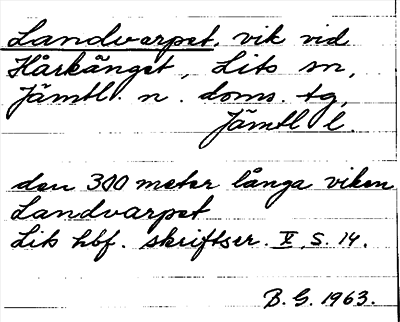 Landvarpet, vik vid
Hårkänget, Lits sn,
Jämtl. n. doms. tg,
Jämtl l.
den 300 meter långa viken
Landvarpet
Lits hbf. skriftser. V, s. 14.
B. G. 1963.